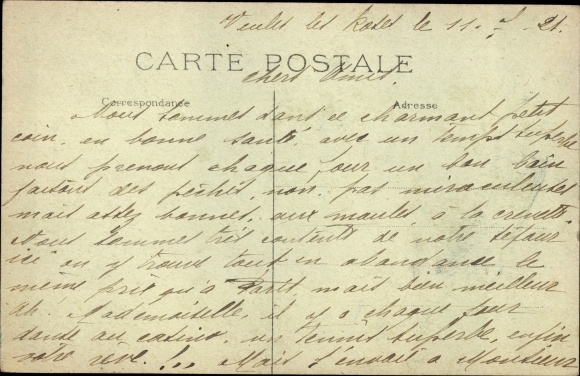 Veules les Roses le 11. 7. 21.
CARTE POSTALE
Chers Amis.
Correspondance
Adresse
Nous sommes dans ce charmant petit
coin, en bonne santé, avec un temps superbe
nous prenons chaque jour un bon bain
faisons des pêches, non pas miraculeuses
mais assez bonnes, aux moules, à la crevette.
Nous sommes très contents de notre séjour
ici on y trouve tout en abondance le
même prix qu'à Paris mais bien meilleur
Ah. Mademoiselle, il y a chaque jour
danse au casino, un tennis superbe, enfin
votre rêve!... Mais j'envoie à Monsieur